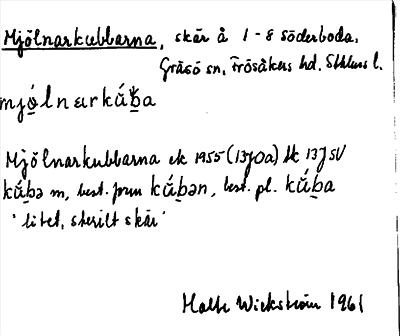 Mjölnarkubbarna, skär å 1-8 Söderboda.
Gräsö sn, Frösåkers hd. Sthlms l.
mjó̱lnarkú̱ba
Mjölnarkubbarna ek 1955 (13J0a) 13J SV
kú̱bə m, best. form kú̱bən, best. pl. kú̱ba
'litet, sterilt skär'
Wickström 1961